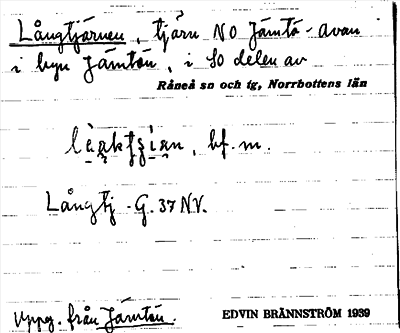 Långtjärnen, tjärn NO Jämtö-avan
i byn Jämtön, i SO delen av
Råneå sn och tg, Norrbottens län
bf. m.
Långtj - G. 37 NV.
Uppg. från Jämtön.
EDVIN BRÄNNSTRÖM 1939